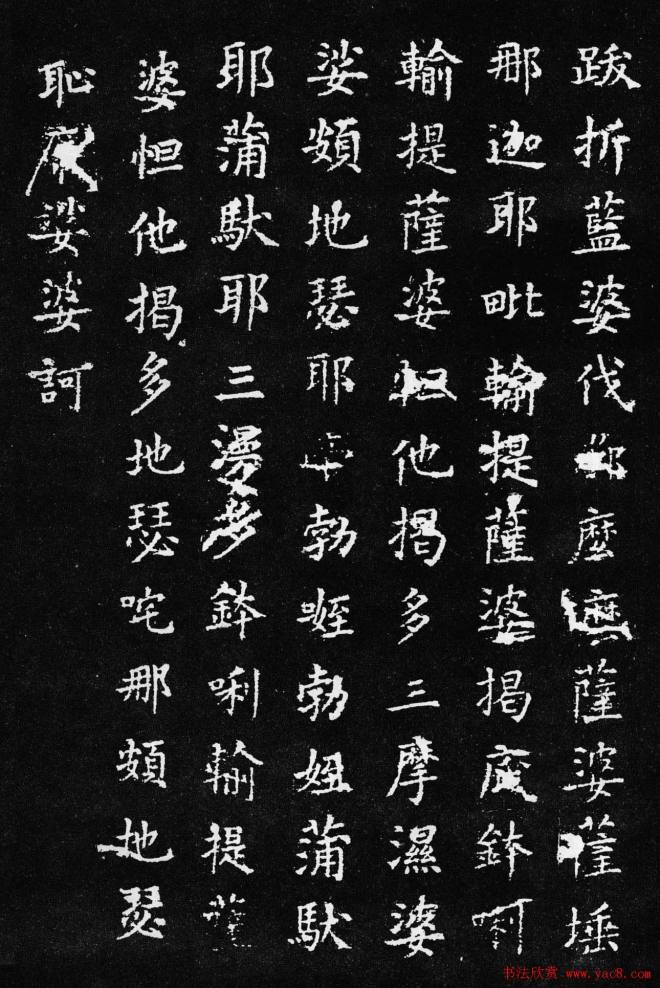 跋折藍婆伐都麼麼薩婆薩埵
那迦耶毗輸提薩婆揭底鉢唎
輸提薩婆怛他揭多三摩濕婆
娑頞地瑟耶 勃哋勃妞蒲馱
耶蒲馱耶三漫多鉢唎輸提薩
婆怛他揭多地瑟咤那頞地瑟
恥 娑婆訶
书法欣赏 www.yac8.com